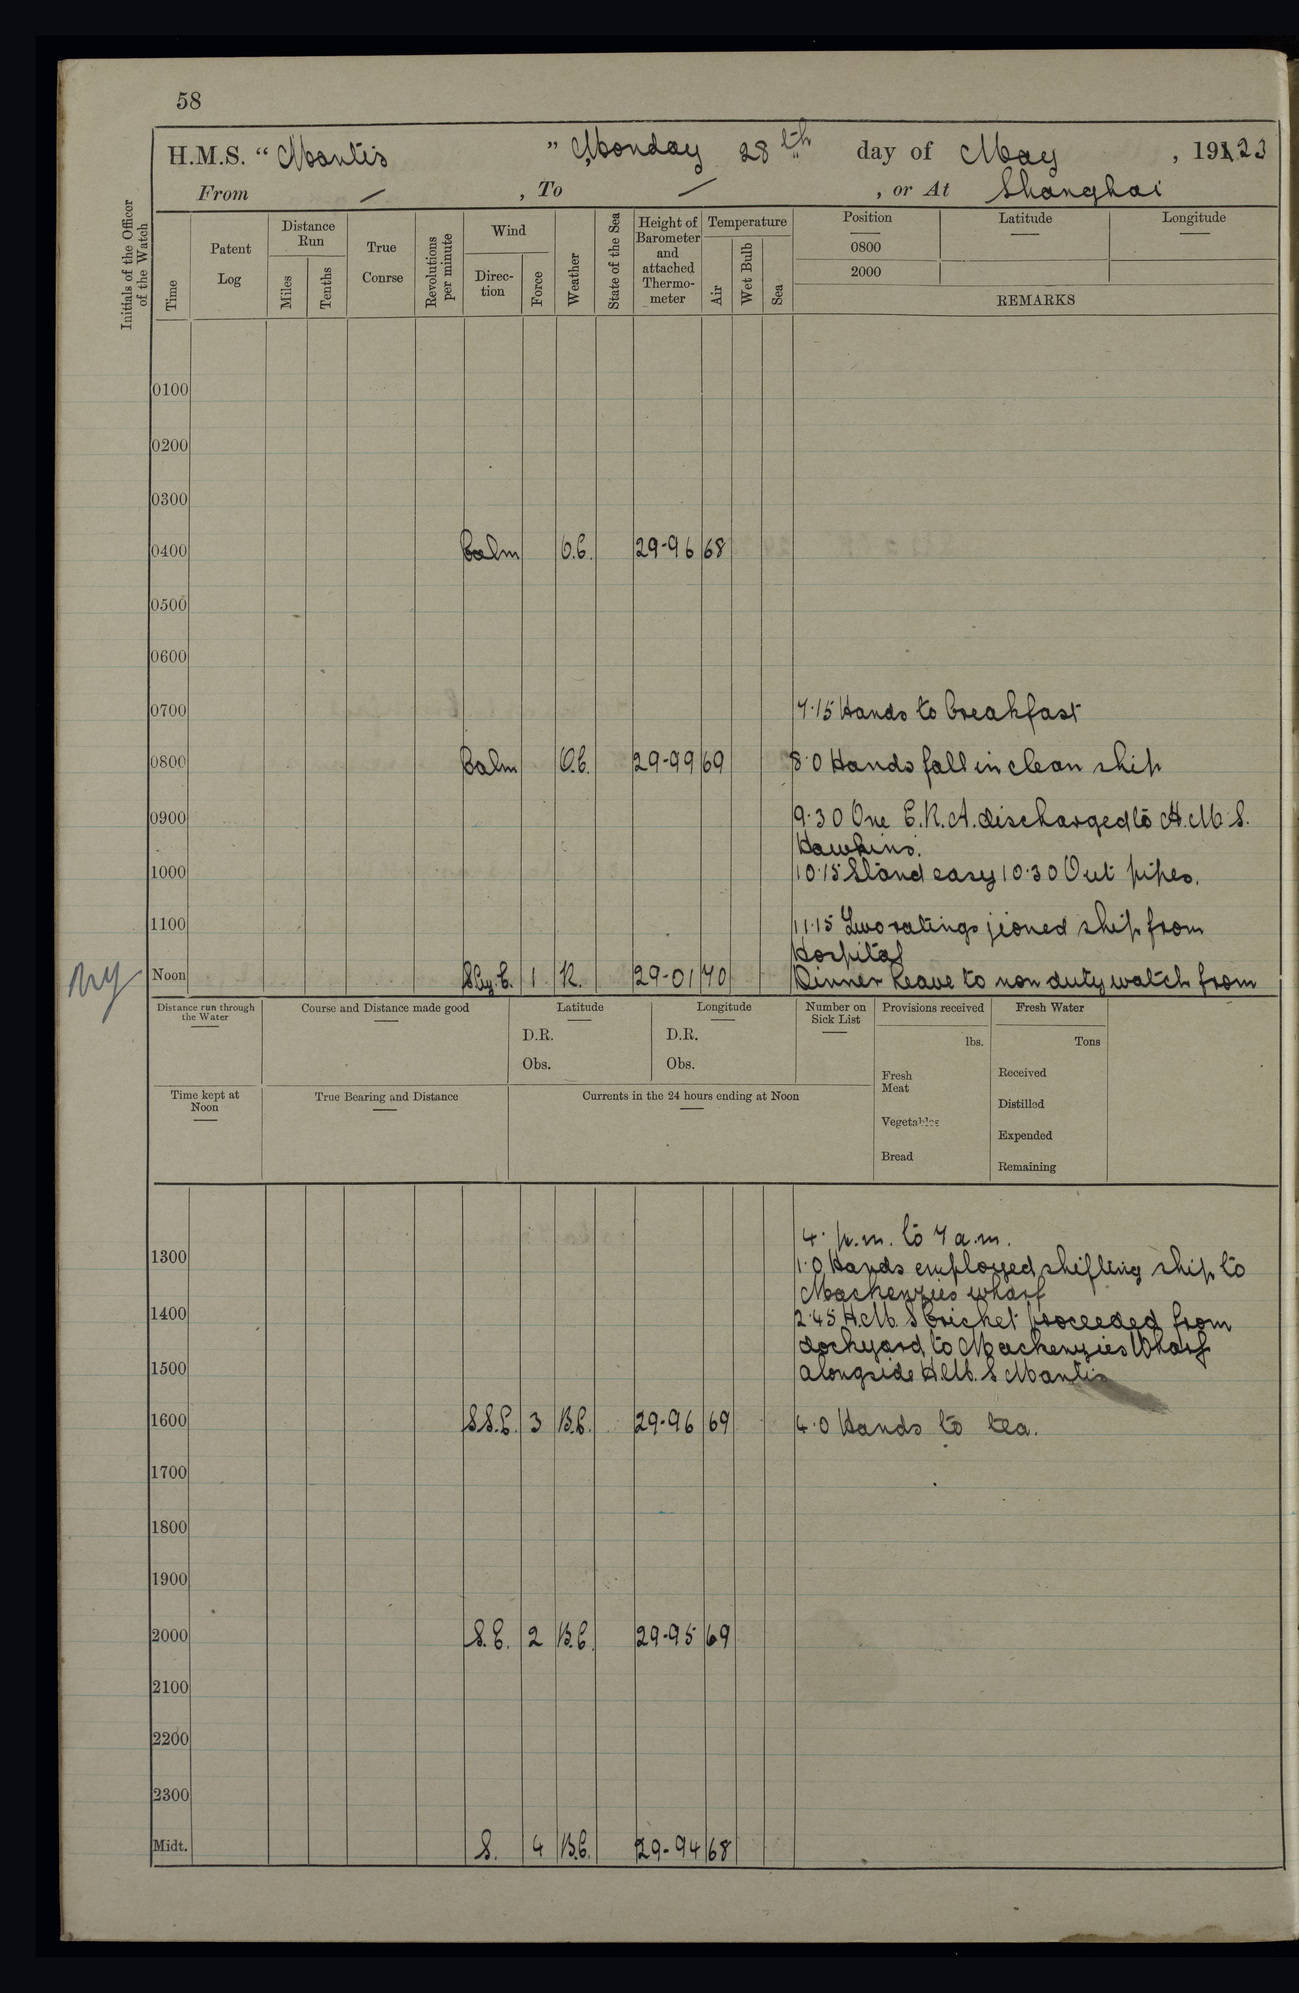 58
H.M.S. “ Mantis ” Monday 28th day of May , 1923
From / , To / , or At Shanghai
Initials of the Officer of the Watch
Time
Patent Log
Distance Run
Miles
Tenths
True Conrse
Revolutions per minute
Wind
Direc-tion
Force
Weather
State of the Sea
Height of Barometer and attached Thermo-meter
Temperature
Air
Wet Bulb
Sea
Position
Latitude
Longitude
0800
2000
REMARKS
0100
0200
0300
0400 Calm O.C. 29-96 68
0500
0600
0700 7.15 Hands to breakfast
0800 Calm O.C. 29-99 69 8.0 Hands fall in clean ship
0900 9.30 One E.R.A. discharged to H.M.S.
Hawkins.
1000 10.15 Stand easy 10.30 Out pipes.
1100 11.15 Two ratings jioned ship from
Hospital
Noon S.by.E. 1 R. 29-01 70 Dinner Leave to non duty watch from
Distance run through the Water
Course and Distance made good
Latitude
D.R.
Obs.
Longitude
D.R.
Obs.
Number on Sick List
Provisions received
lbs.
Fresh Meat
Vegetables
Bread
Fresh Water
Tons
Received
Distilled
Expended
Remaining
Time kept at Noon
True Bearing and Distance
Currents in the 24 hours ending at Noon
4. p.m. to 7 a.m.
1300 1.0 Hands employed shifting ship to
Mackenzies wharf
1400 2.45 H.M.S Cricket proceeded from
dockyard to Mackenzies Wharf
1500 alongside H.M.S Mantis
1600 S.S.E. 3 B.C. 29-96 69 4.0 Hands to tea.
1700
1800
1900
2000 S.E. 2 B.C. 29-95 69
2100
2200
2300
Midt. S. 4 B.C. 29-94 68